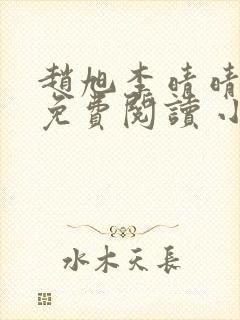 趙旭李晴晴
免費閱讀小
水木天長